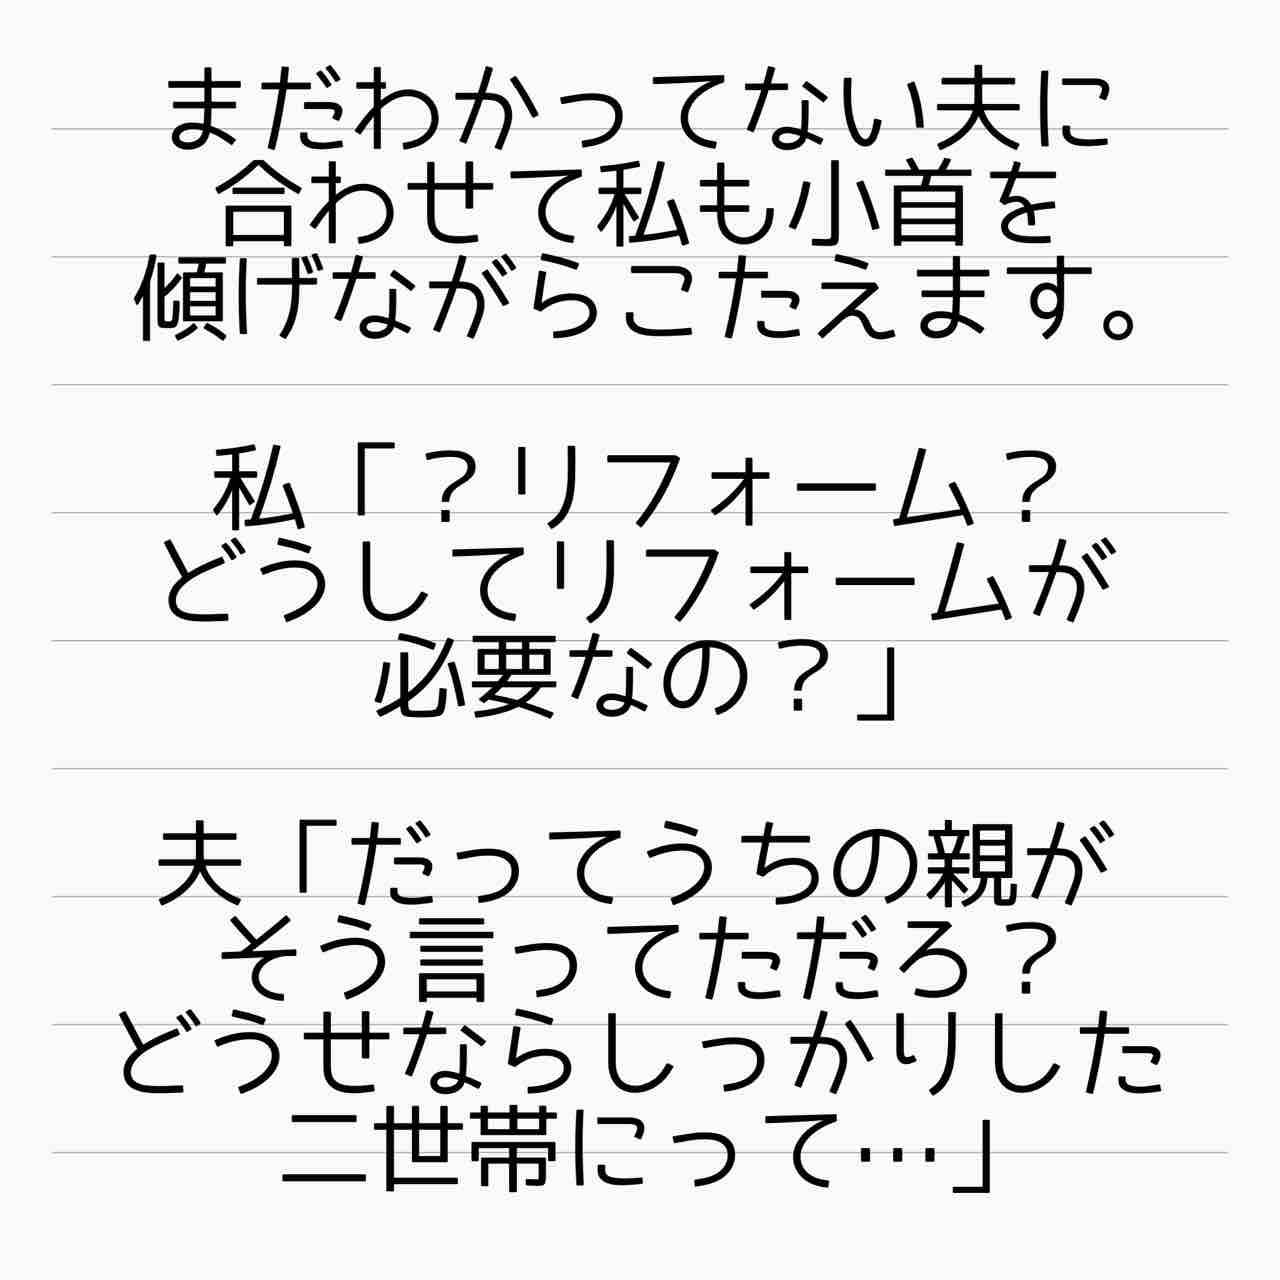 まだわかってない夫に
合わせて私も小首を
傾げながらこたえます。
私「？リフォーム？
どうしてリフォームが
必要なの？」
夫「だってうちの親が
そう言ってただろ？
どうせならしっかりした
二世帯にって…」